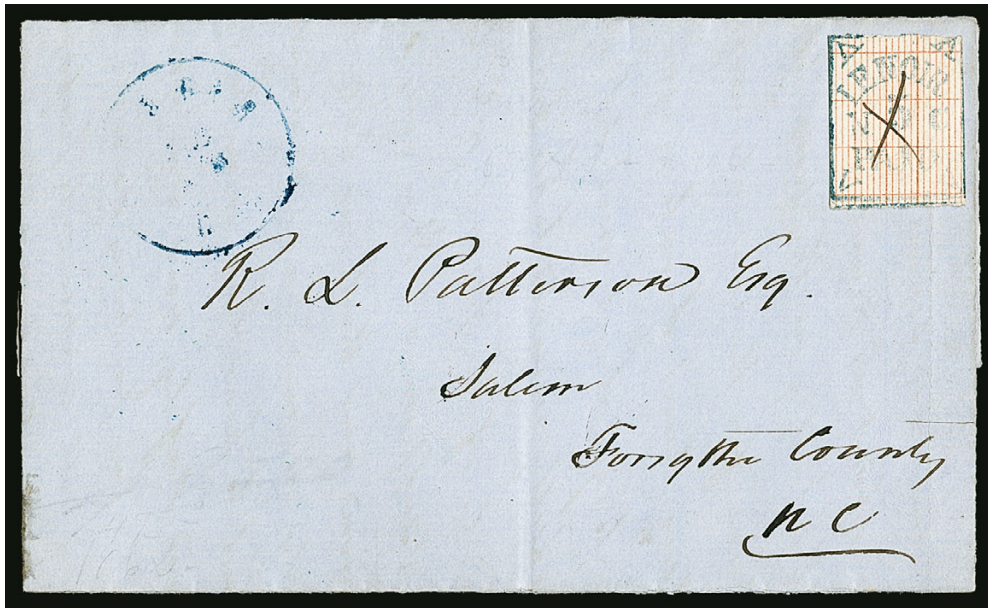 LENOIR
PAID
R. L. Patterson Esq.
Salem
Forsythe County
N C